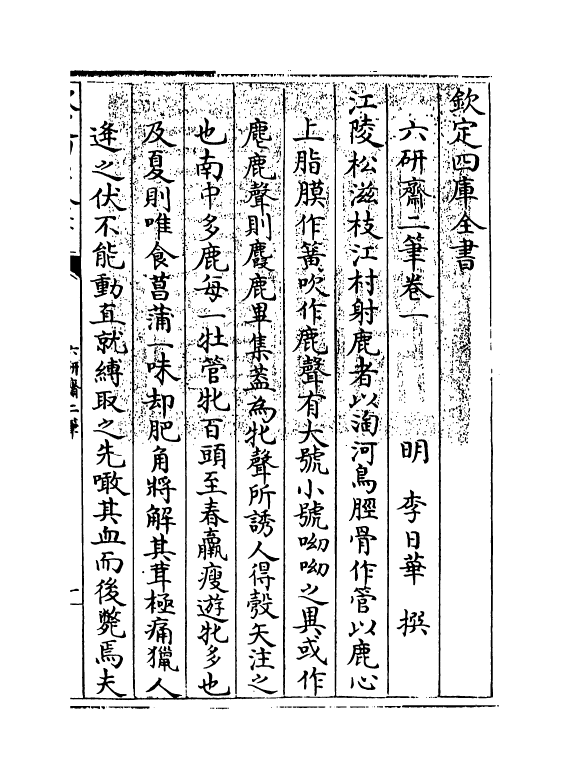 欽定四庫全書
六研齋二筆卷一
明 李日華 撰
江陵松滋枝江村射鹿者以淘河鳥脛骨作管以鹿心
上脂膜作簧吹作鹿聲有大號小號呦呦之異或作
麀鹿聲則麚鹿畢集蓋為牝聲所誘人得彀矢注之
也南中多鹿每一牡管牝百頭至春羸瘦遊牝多也
及夏則唯食菖蒲一味却肥角將解其茸極痛獵人
逢之伏不能動直就縛取之先啖其血而後斃焉夫
六研齋二筆
一